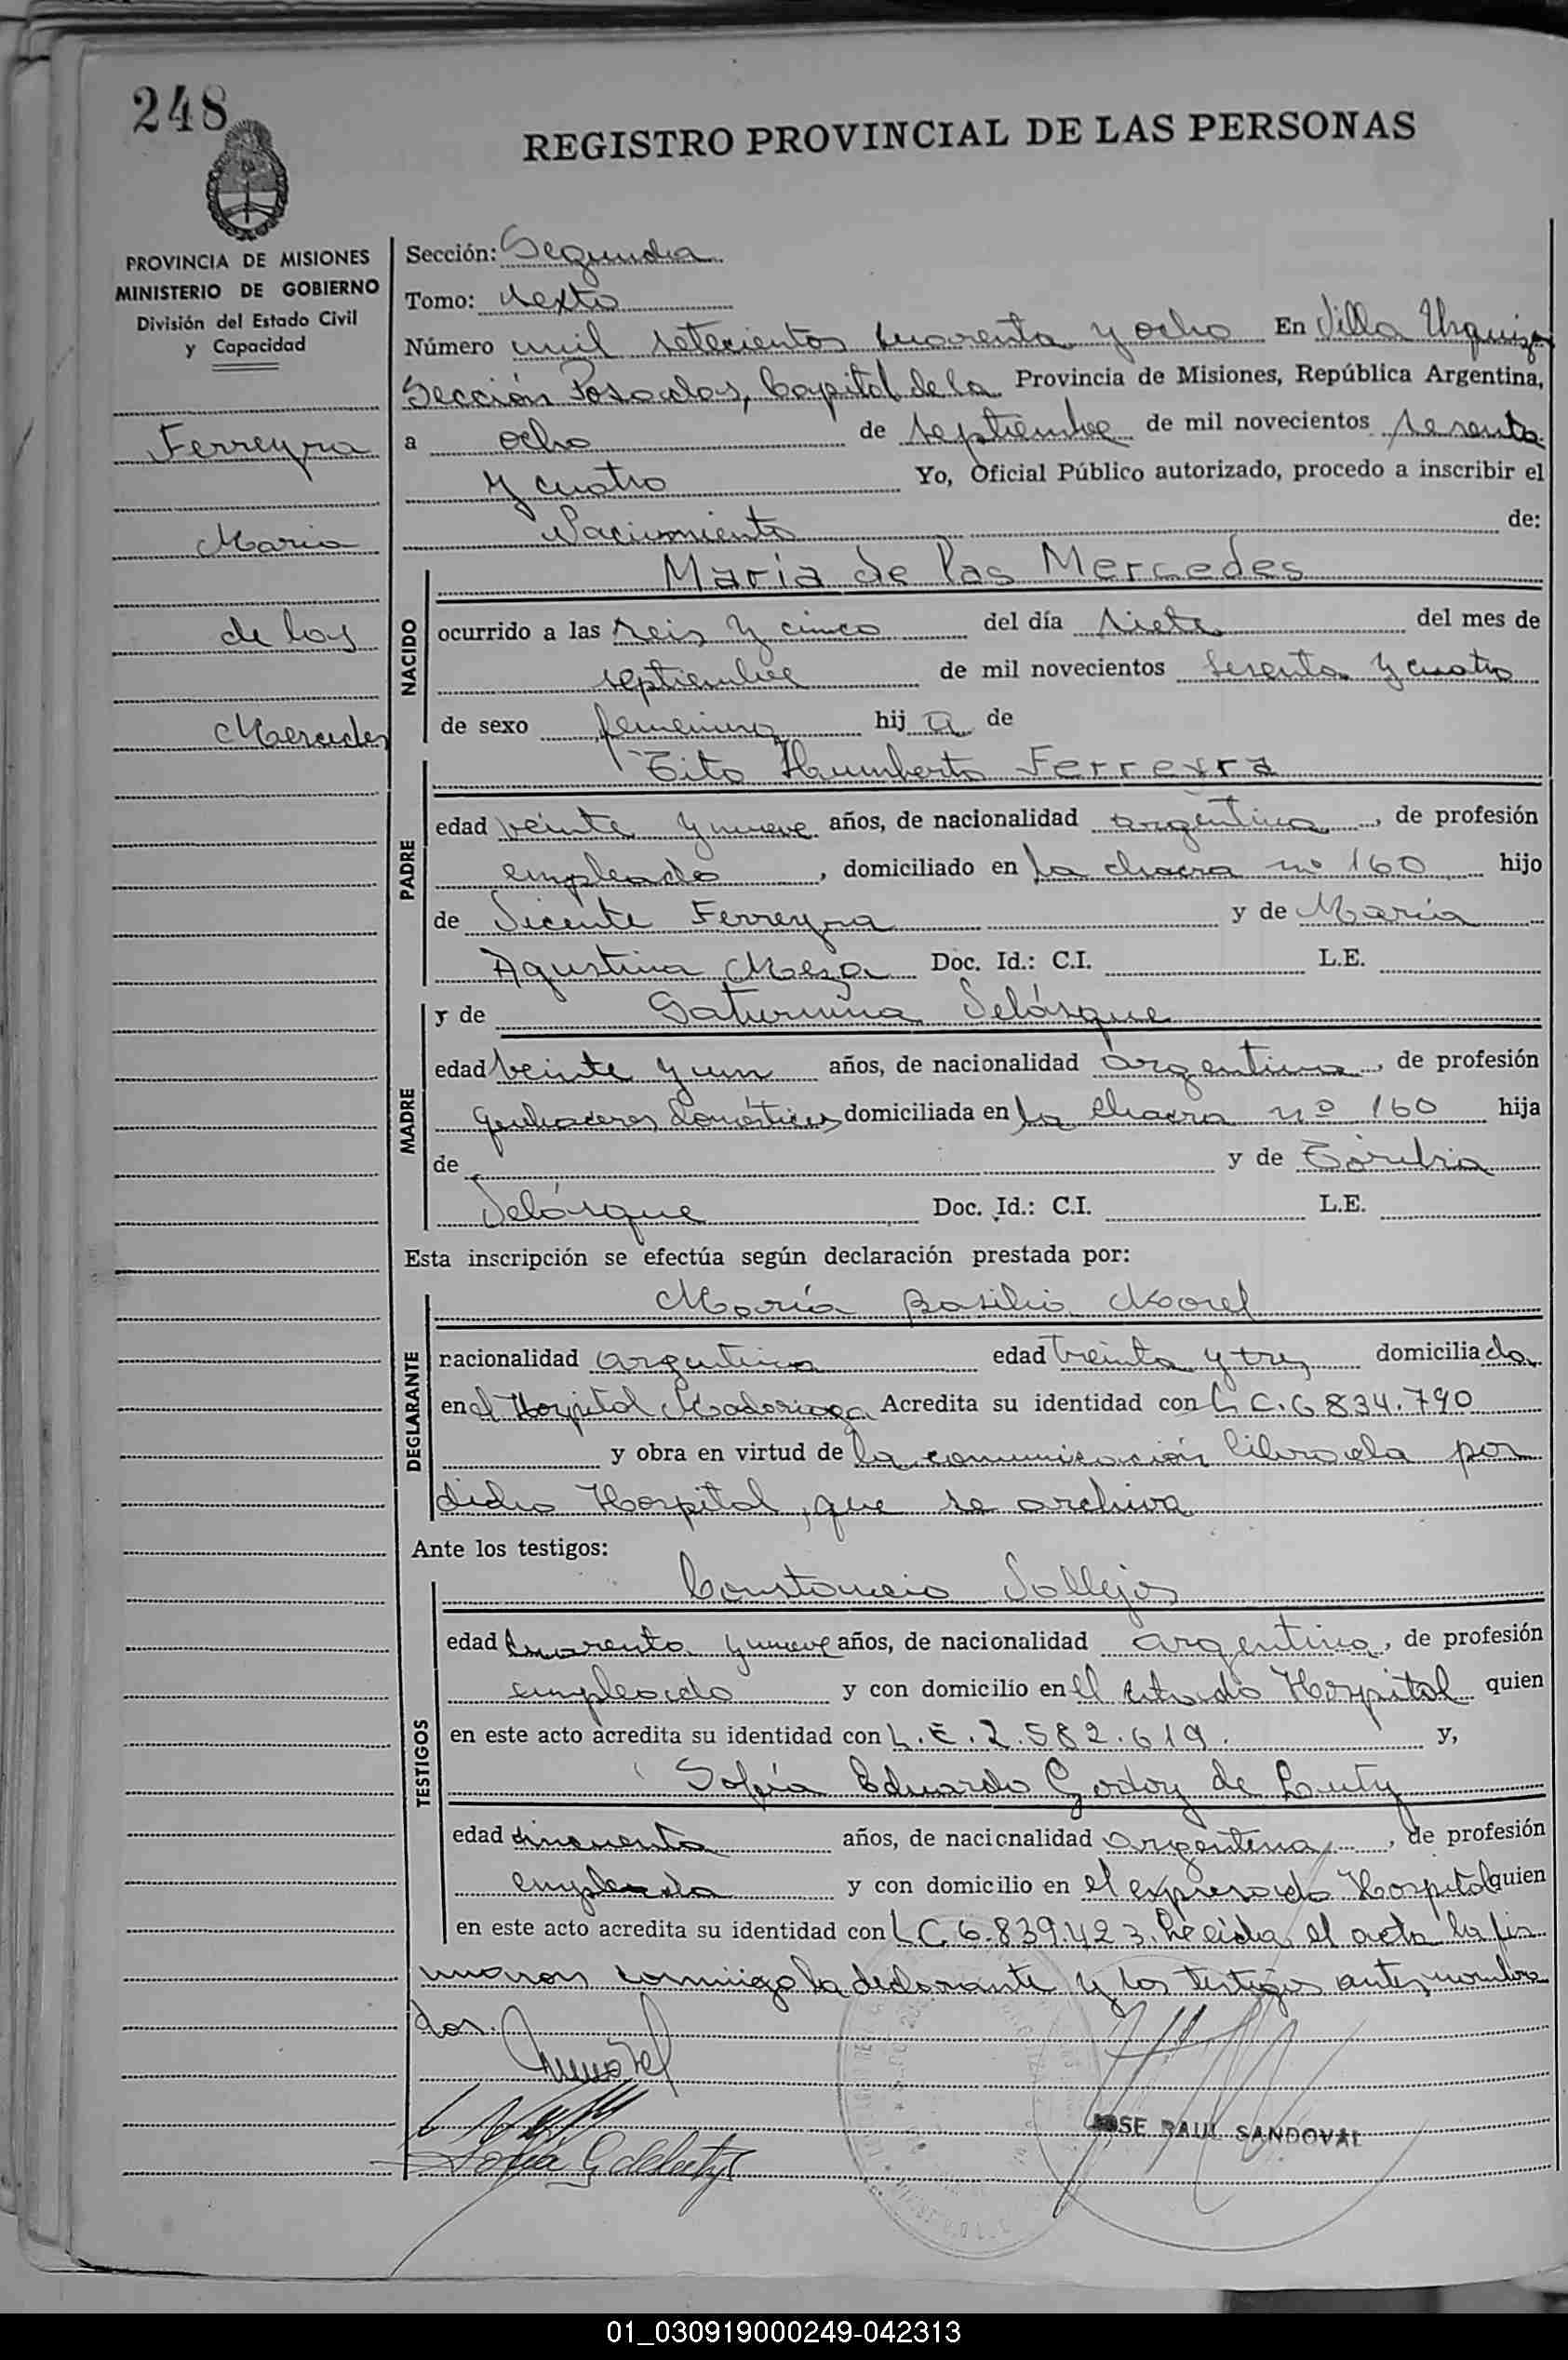 248
REGISTRO PROVINCIAL DE LAS PERSONAS
PROVINCIA DE MISIONES
MINISTERIO DE GOBIERNO
División del Estado Civil
y Capacidad
Ferreyra
Maria
de las
Mercedes
Sección: Segunda
Tomo: sexto
Número mil setecientos cuarenta y ocho En Villa Urquiza
Sección Posadas, Capital de la Provincia de Misiones, República Argentina,
a ocho de septiembre de mil novecientos sesenta
y cuatro Yo, Oficial Público autorizado, procedo a inscribir el
Nacimiento de:
NACIDO
María de las Mercedes
ocurrido a las seis y cinco del día siete del mes de
septiembre de mil novecientos sesenta y cuatro
de sexo femenino hij a de
PADRE
Tito Humberto Ferreyra
edad veinte y nueve años, de nacionalidad argentina, de profesión
empleado, domiciliado en la chacra nº 160 hijo
de Vicente Ferreyra y de María
Agustina Meza Doc. Id.: C.I. L.E.
MADRE
y de Saturnina Velásque
edad veinte y un años, de nacionalidad argentina, de profesión
quehaceres domésticos domiciliada en la chacra nº 160 hija
de y de Toribia
Velásque Doc. Id.: C.I. L.E.
Esta inscripción se efectúa según declaración prestada por:
DECLARANTE
María Basilia Morel
nacionalidad argentina edad treinta y tres domiciliada
en el Hospital Madariaga Acredita su identidad con L C. 6 834.790
y obra en virtud de la comunicación librada por
dicho Hospital, que se archiva
Ante los testigos:
TESTIGOS
Constancio Vallejos
edad cuarenta y nueve años, de nacionalidad argentino, de profesión
empleado y con domicilio en el citado Hospital quien
en este acto acredita su identidad con L.E. 2.582.619. y,
Sofía Eduardo Godoy de
edad cincuenta años, de nacionalidad argentina, de profesión
empleada y con domicilio en el expresado Hospital quien
en este acto acredita su identidad con L C 6.839.423. Leída el acta la fir
maron conmigo la declarante y los testigos antes nombra
dos.
JOSE RAUL SANDOVAL
01_030919000249-042313